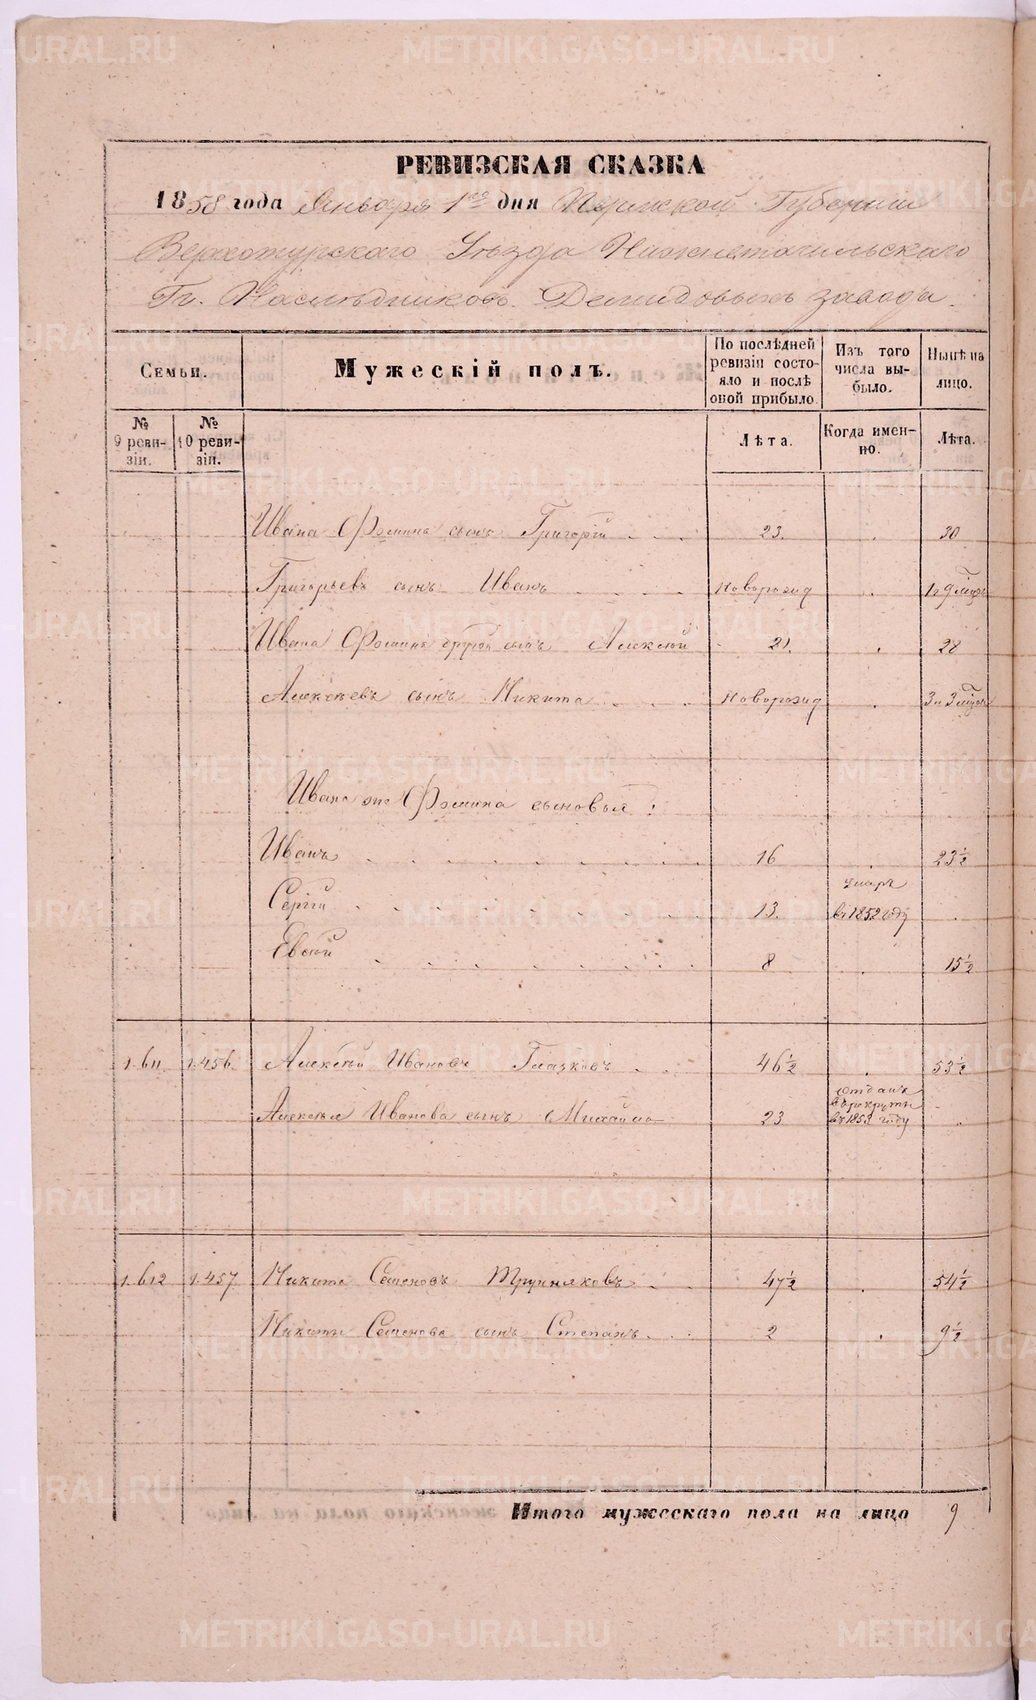 РЕВИЗСКАЯ СКАЗКА
1858 года Января 1го дня Пермской Губернии
Верхотурскаго Уѣзда Нижнетагильскаго
Гг. Наслѣдниковъ Демидовыхъ завода.
Семьи.
Мужескій полъ.
По послѣдней ревизіи состояло и послѣ оной прибыло
Изъ того числа выбыло.
Нынѣ на лицо.
№ 9 ревизіи.
№ 10 ревизіи.
Лѣта.
Когда именно.
Лѣта.
Ивана Фомина сынъ Григорій 23. 30
Григорьевъ сынъ Иванъ новорожд 1 и 9 мѣс
Ивана Фомина другой сынъ Алексѣй 21. 28
Алексѣевъ сынъ Никита новорожд 3 и 3 мѣс
Фомина сыновья:
Иванъ 16 23½
Сергій 13. умеръ в 1852 году
Евсѣй 8 15½
1.611. 1.456. Алексѣй Ивановъ Глазковъ 46½ 53½
Алексѣя Иванова сынъ Михайло 23 отданъ въ рекруты въ году
1.612 1.457. Никита Семеновъ 47½ 54½
Никиты Семенова сынъ Степанъ 2 9½
Итого мужескаго пола на лицо 9
METRIKI.GASO-URAL.RU